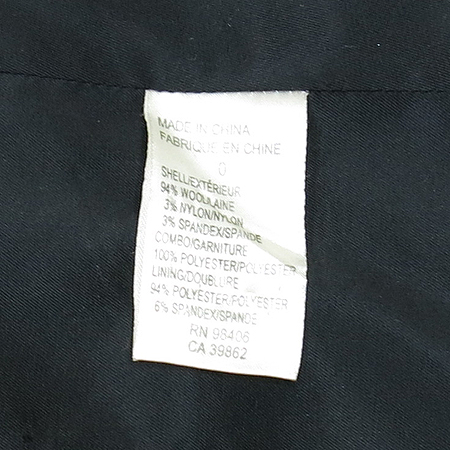 MADE IN CHINA
FABRIQUE EN CHINE
0
SHELL/EXTÉRIEUR
94% WOOL/LAINE
3% NYLON/NYLON
3% SPANDEX/SPANDE
COMBO/GARNITURE
100% POLYESTER/POLYESTER
LINING/DOUBLURE
94% POLYESTER/POLYESTER
6% SPANDEX/SPANDE
RN 96406
CA 39862